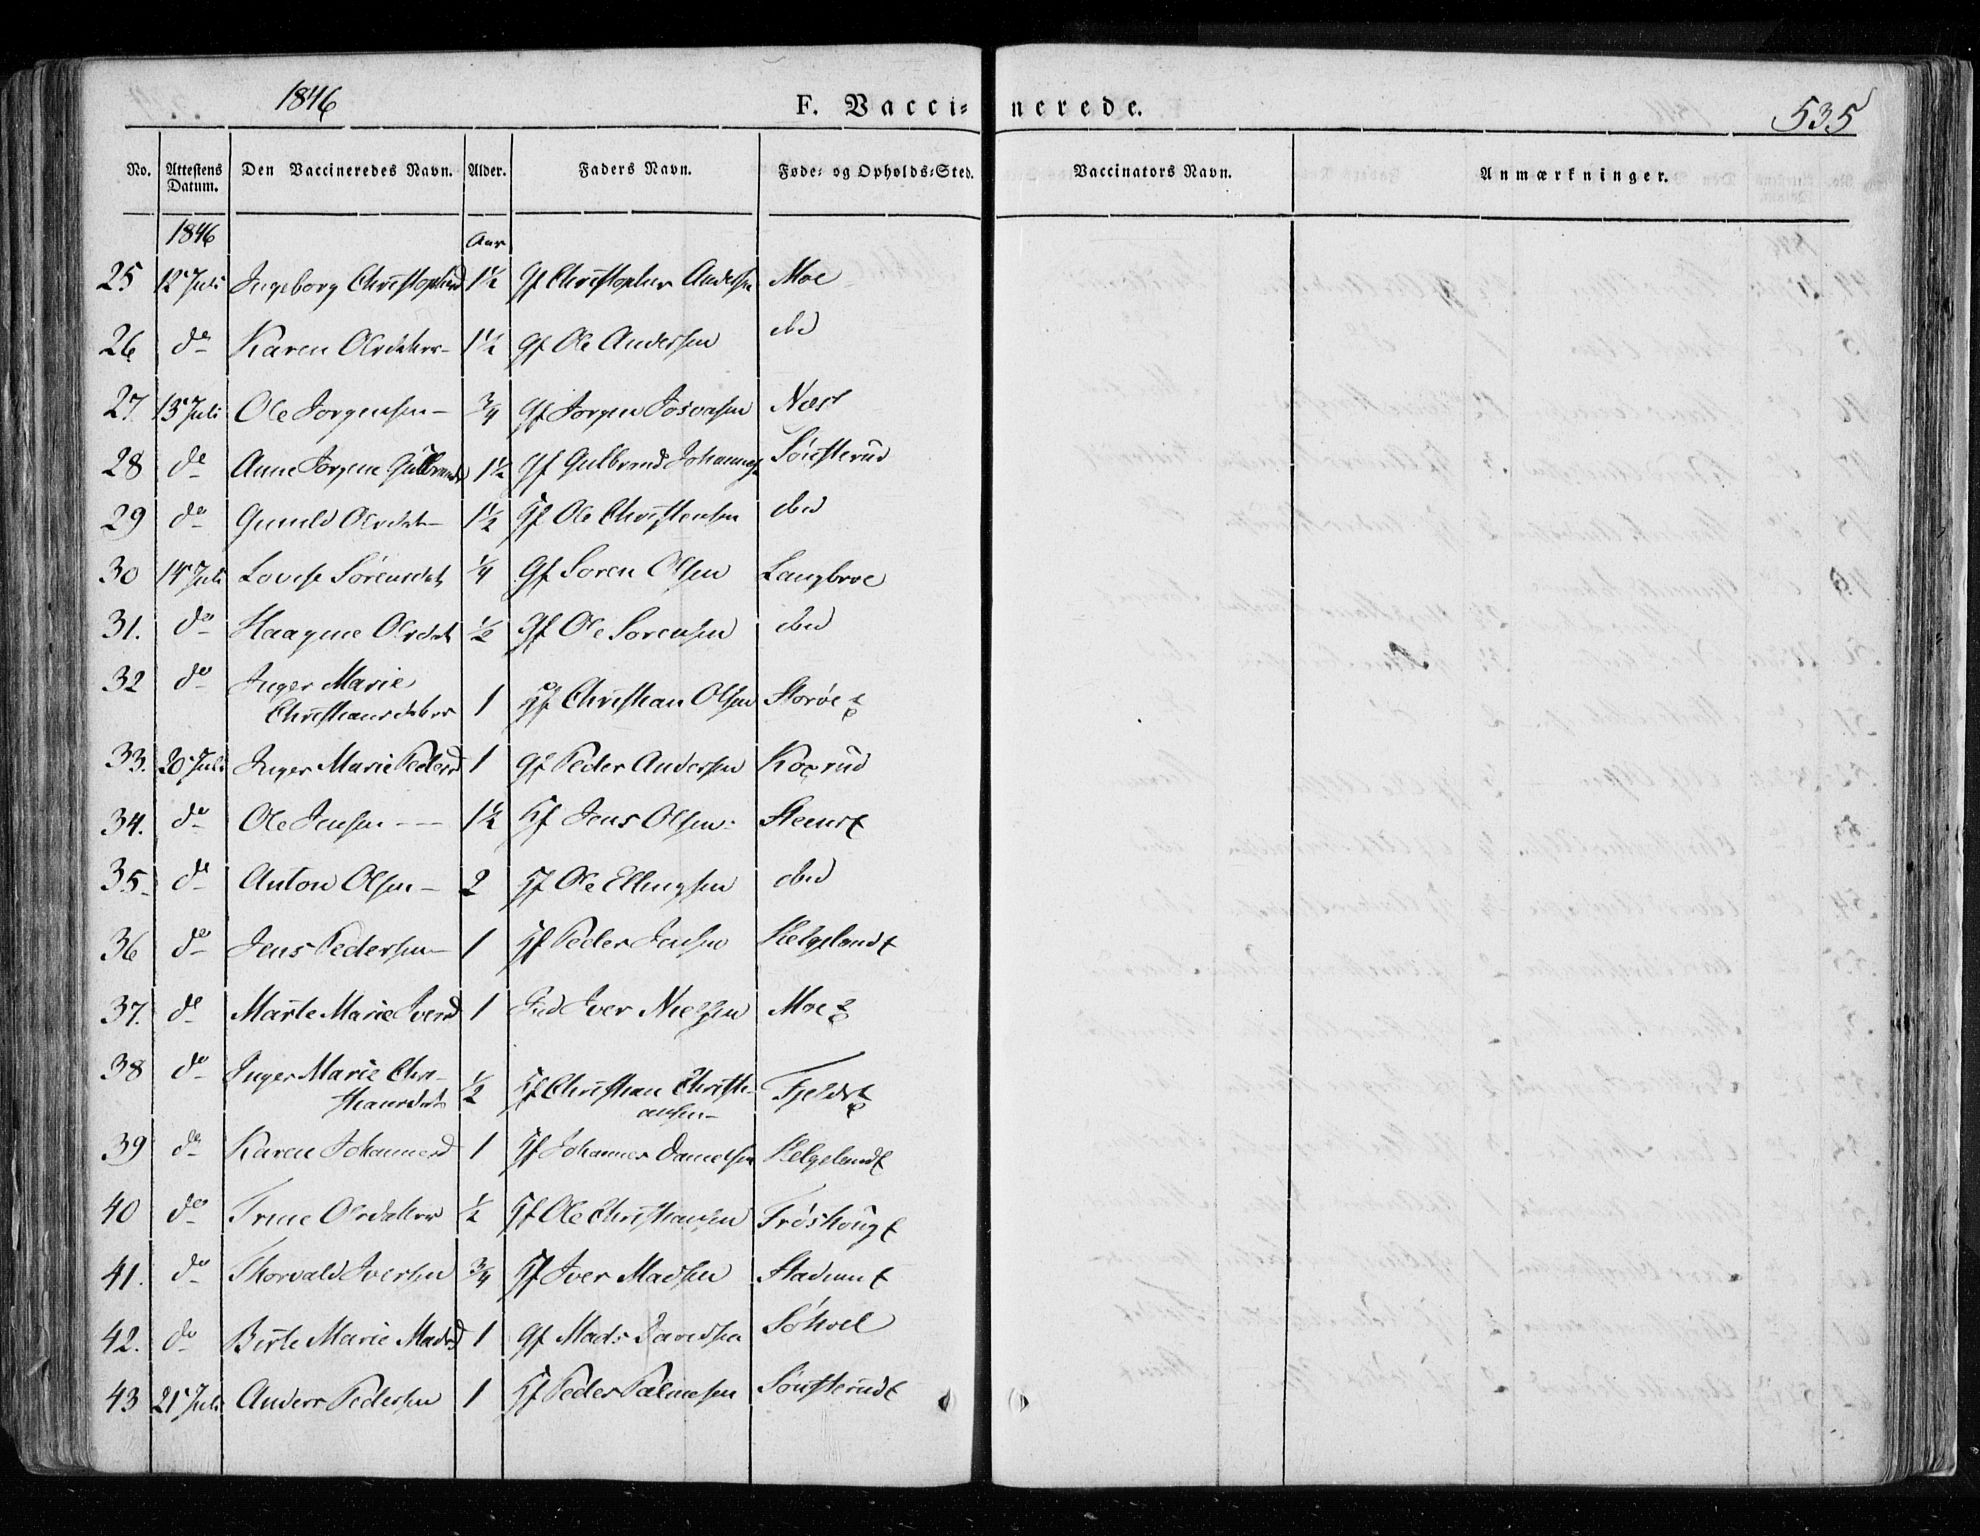 1846 F. Vacci- nerede. 535
No. Attestens Datum. Den Vaccineredes Navn. Alder. Faders Navn. Føde- og Opholds-Sted. Vaccinators Navn. Anmærkninger.
1846 Aar
25 12 Juli Ingeborg Christophersd 1½ Gf Christopher Andersen Moe
26 do Karen Olsdatter 1½ Gf Ole Andersen ibid
27. 13 Juli Ole Jorgensen 3/4 Gf Jorgen Josvasen Næss
28 do Anne Jorgine Gulbrands 1½ Gf Gulbrand Johannes Sönsterud
29 do Gunild Olsdat 1½ Hf Ole Christensen ibid
30 14 Juli Lovise Sörensdat 1/4 Gf Soren Olsen Langbroe
31. do Haagine Olsdat ½ Gf Ole Sorensen ibid
32 do Inger Marie
Christiansdatter 1 Hf Christian Olsen Storøe
33. 20 Juli Inger Marie Pedersd 1 Gf Peder Andersen Koxrud
34. do Ole Jensen 1½ Hf Jens Olsen
35. do Anton Olsen 2 Hf Ole Ellingsen ibid
36 do Jens Pedersen 1 Hf Peder Jensen Helgeland
37. do Marte Marie Iversd 1 Ind Iver Nielsen Moe
38 do Inger Marie Chri-
stiansdat ½ Hf Christian Christi-
ansen Fjeld
39 do Karen Johannesd 1 Hf Johannes Danielsen Helgeland
40 do Trine Olsdatter ½ Hf Ole Christiansen Fröshoug
41. do Thorvald Iversen 3/4 Hf Iver Madsen Stadum
42. do Birte Marie Madsd 1 Gf Mads Davidsen Sökoel
43 21 Juli Anders Pedersen 1 Hf Peder Palmesen Sönsterud